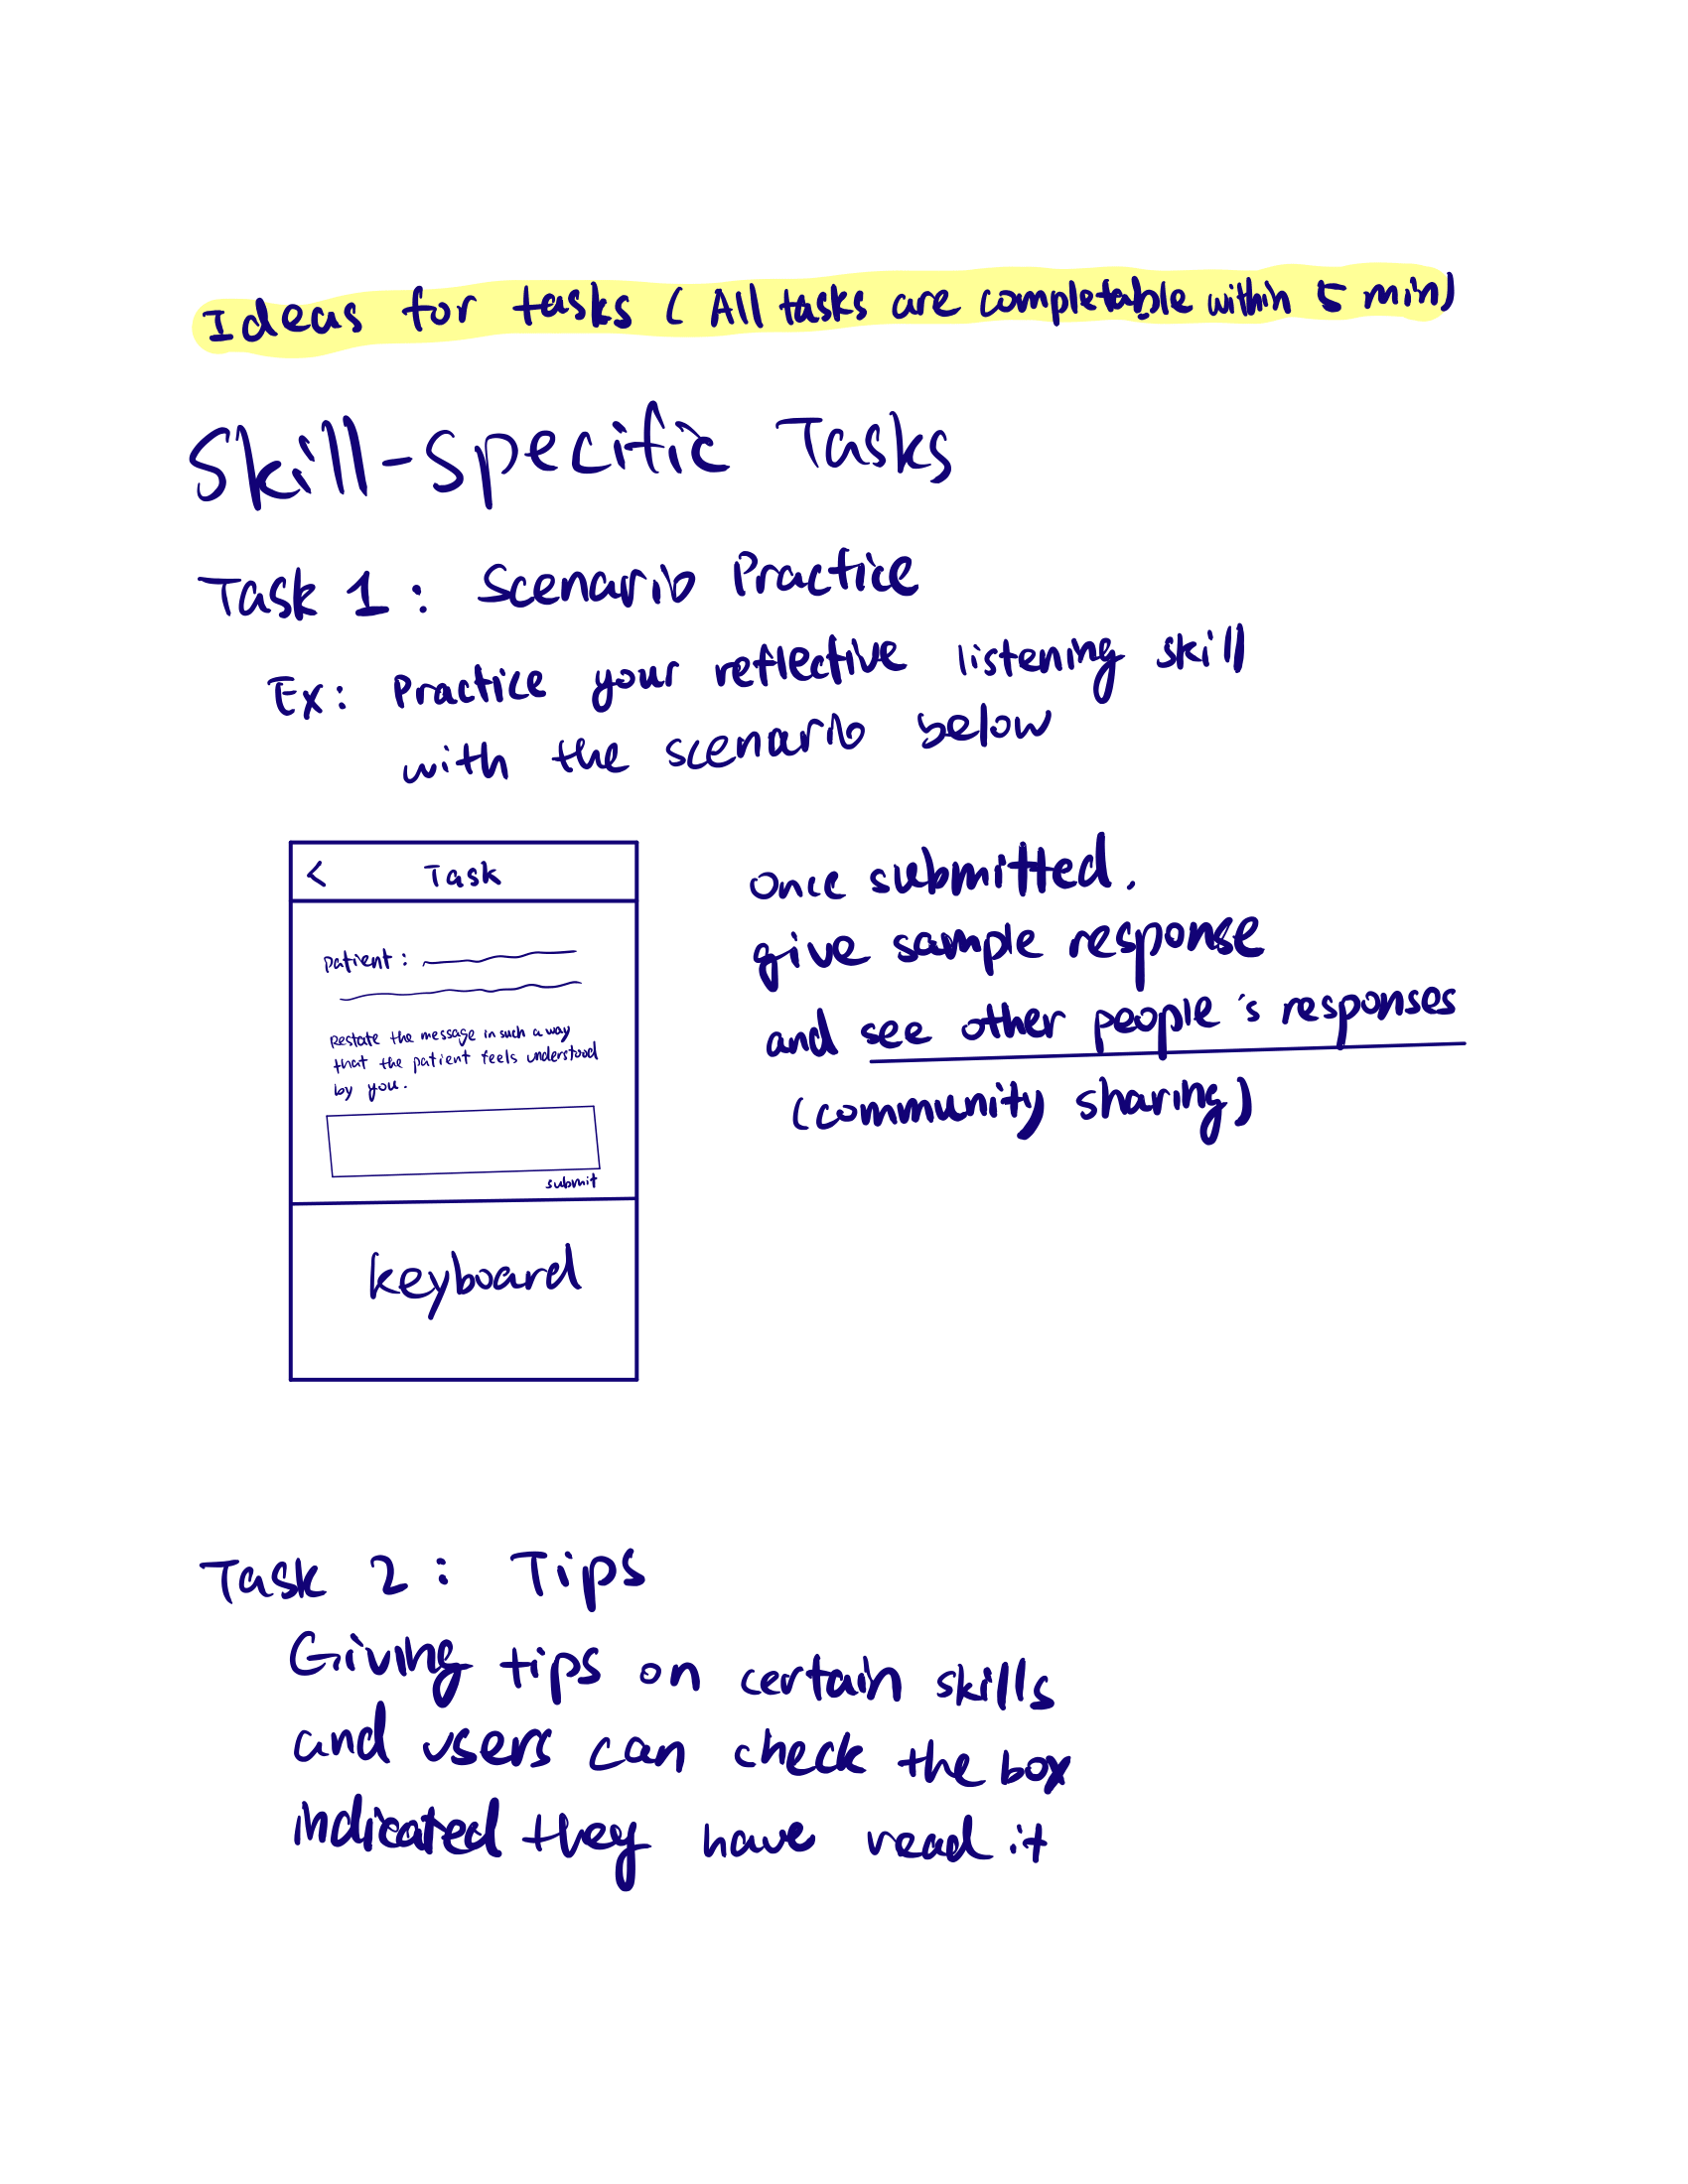 Ideas for tasks (All tasks are completable within 5 min)
Skill-Specific Tasks
Task 1: Scenario Practice
Ex: Practice your reflective listening skill
with the scenario below
< Task
Patient:
Restate the message in such a way
that the patient feels understood
by you.
submit
keyboard
Once submitted.
give sample response
and see other people's responses
(community sharing)
Task 2: Tips
Giving tips on certain skills
and users can check the box
indicated they have read it